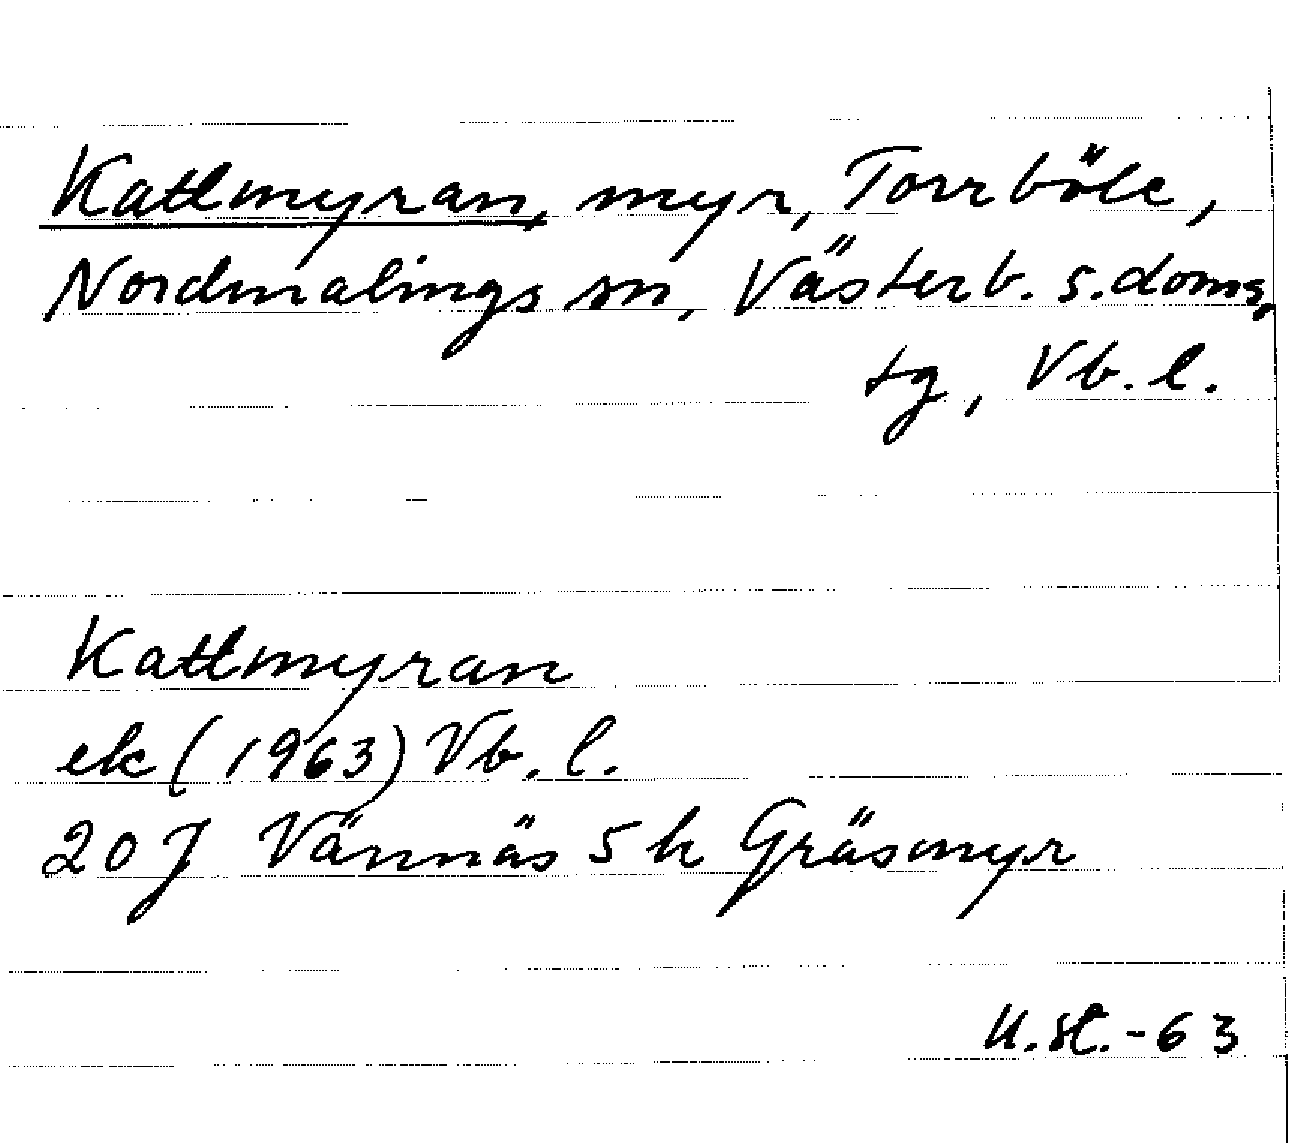 Kattmyran, myr, Torrböle,
Nordmalings sn, Västerb. s. doms.
tg, Vb. l.
Kattmyran
ek (1963) Vb. l.
20 J Vännäs 5 h Gräsmyr
U.H. -63